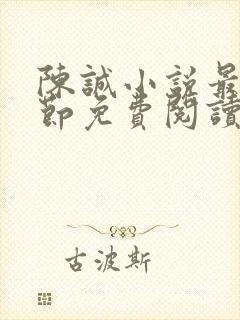 陳誠小說最
節免費閱讀
古波斯